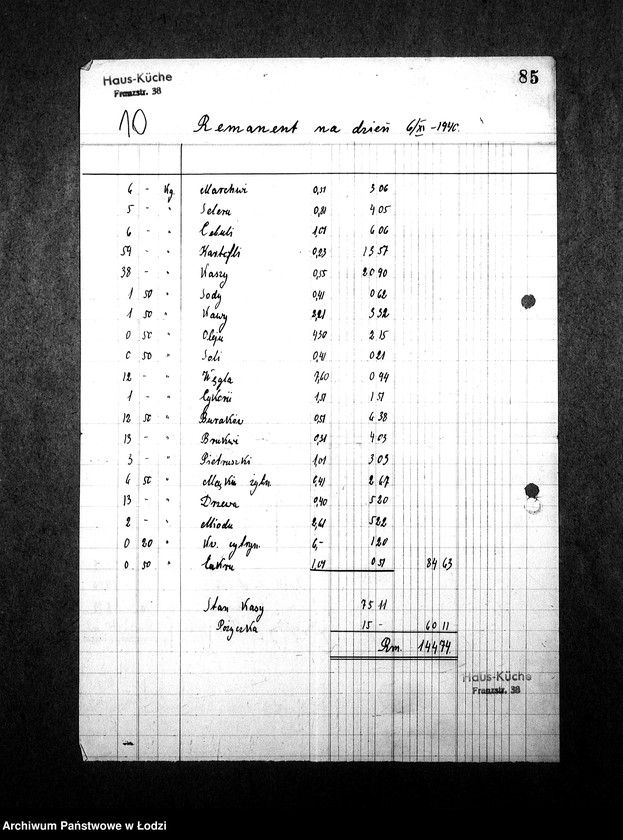 Haus-Küche
Franzstr. 38
85
10 Remanent na dzień 6/XI-1940.
6 - kg. Marchwi 0,51 3 06
5 - " Selera 0,81 4 05
6 - " Cebuli 1,01 6 06
59 - " Kartofli 0,23 13 57
38 - " Kaszy 0,55 20 90
1 50 " Sody 0,41 0 62
1 50 " Kawy 2,21 3 32
0 50 " Oleju 4,30 2 15
0 50 " Soli 0,41 0 21
12 - " Węgla 7,60 0 94
1 - " Cykorii 1,51 1 51
12 50 " Buraków 0,51 6 38
13 - " Brukwi 0,31 4 03
3 - " Pietruszki 1,01 3 03
6 50 " Mąki żytn. 0,41 2 67
13 - " Drzewa 0,40 5 20
2 - " Miodu 2,61 5 22
0 20 " Kw. cytryn. 6,- 1 20
0 50 " Cukru 1,01 0 51 84 63
Stan Kasy 75 11
Pożyczka 15 - 60 11
Rm. 144 74.
Haus-Küche
Franzstr. 38
Archiwum Państwowe w Łodzi